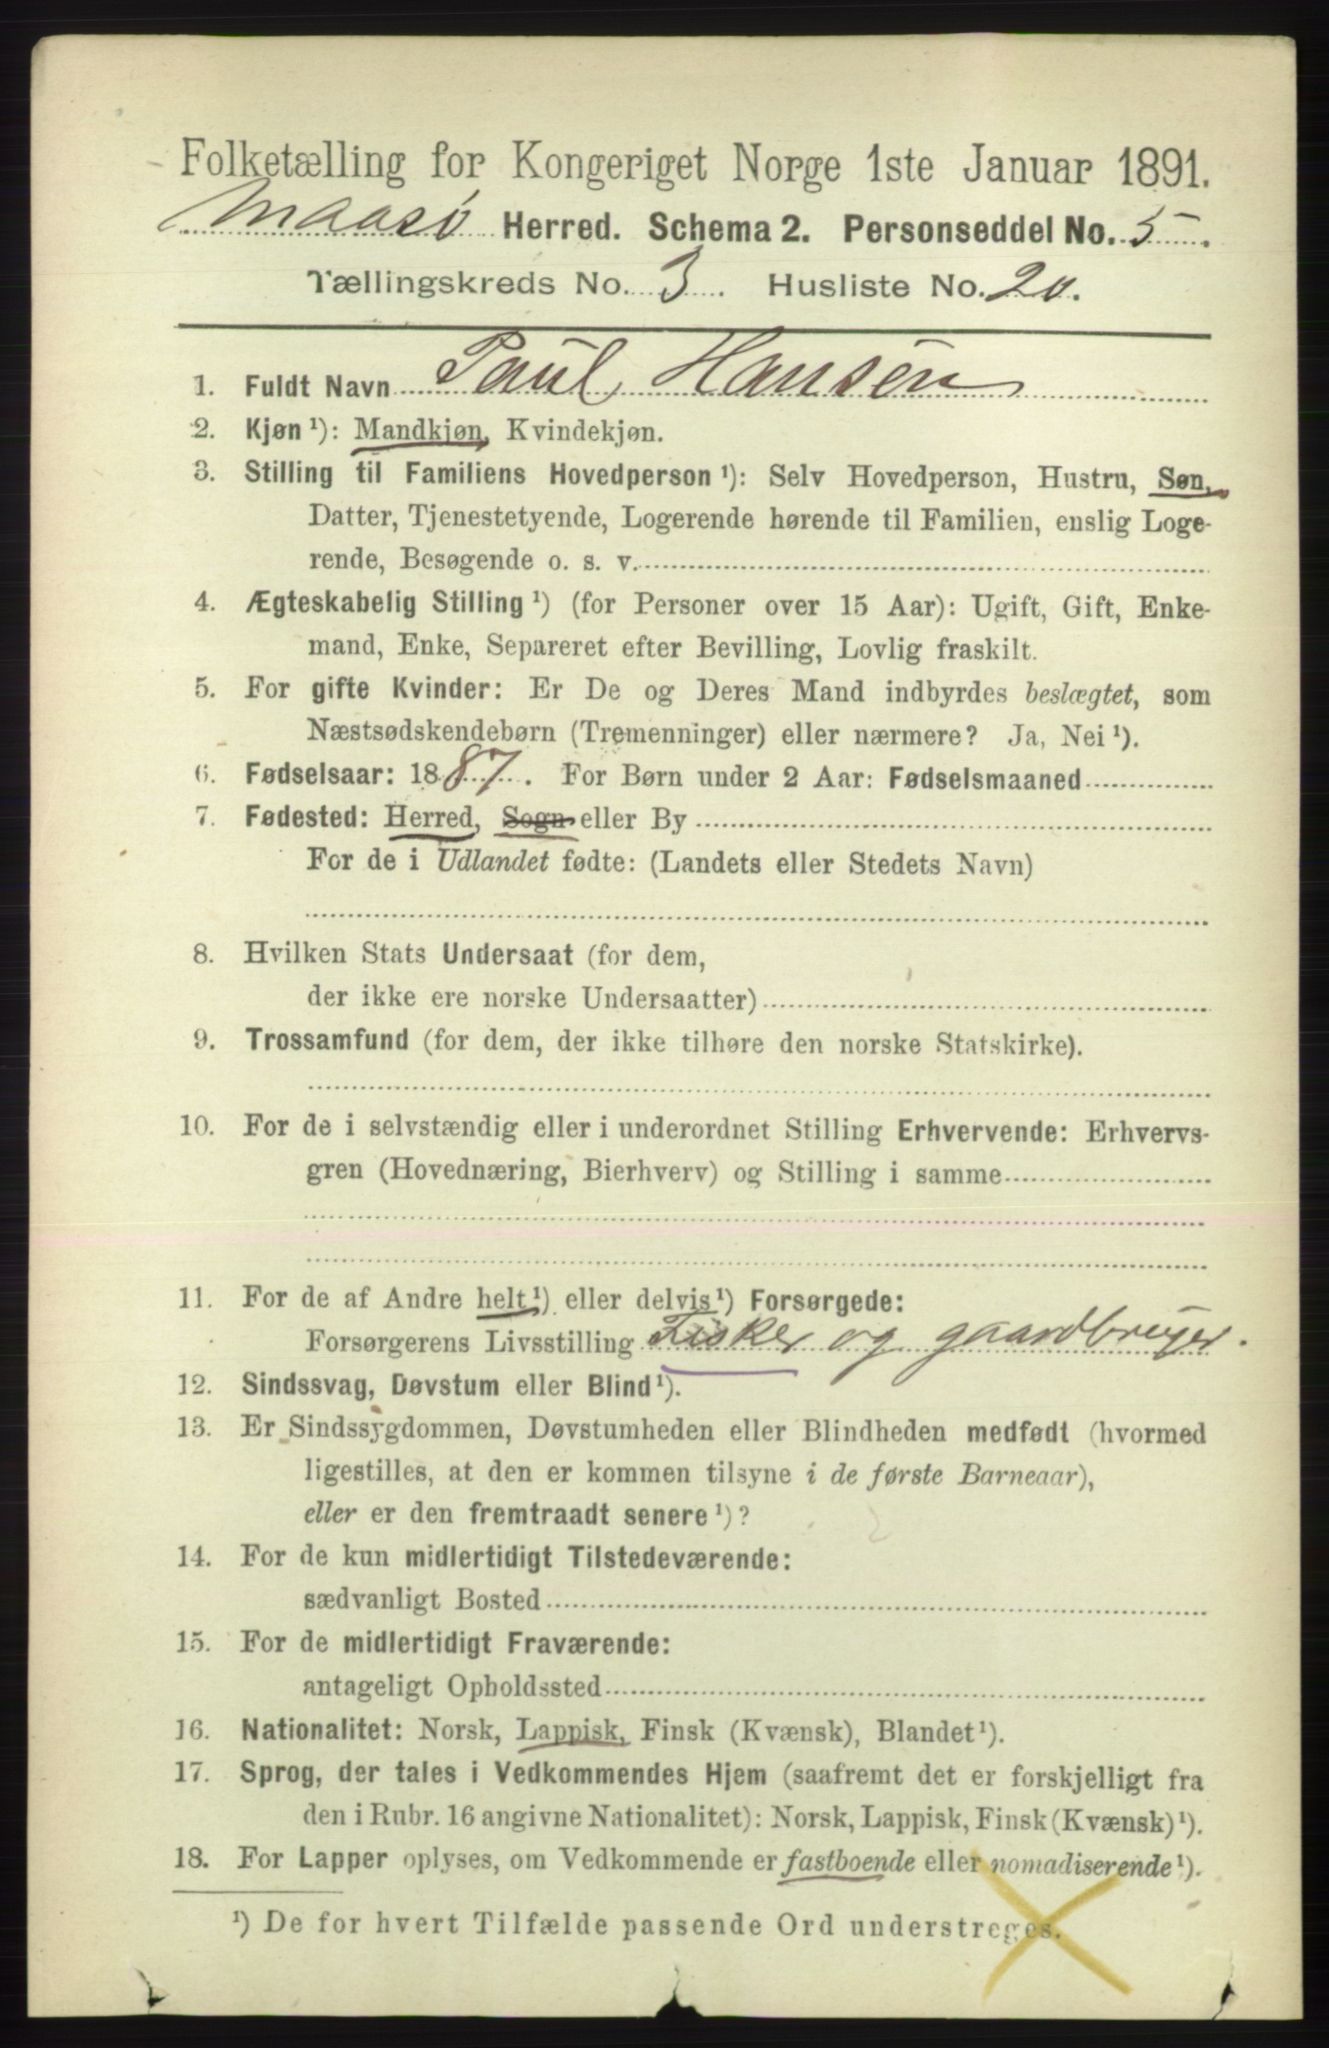 Folketælling for Kongeriget Norge 1ste Januar 1891.
Maasø Herred. Schema 2. Personseddel No. 5.
Tællingskreds No. 3. Husliste No. 20.
1. Fuldt Navn Paul Hansen
2. Kjøn ¹): Mandkjøn, Kvindekjøn.
3. Stilling til Familiens Hovedperson ¹): Selv Hovedperson, Hustru, Søn,
Datter, Tjenestetyende, Logerende hørende til Familien, enslig Loge-
rende, Besøgende o. s. v.
4. Ægteskabelig Stilling ¹) (for Personer over 15 Aar): Ugift, Gift, Enke-
mand, Enke, Separeret efter Bevilling, Lovlig fraskilt.
5. For gifte Kvinder: Er De og Deres Mand indbyrdes beslægtet, som
Næstsødskendebørn (Tremenninger) eller nærmere? Ja, Nei ¹).
6. Fødselsaar: 1887. For Børn under 2 Aar: Fødselsmaaned
7. Fødested: Herred, Sogn eller By
For de i Udlandet fødte: (Landets eller Stedets Navn)
8. Hvilken Stats Undersaat (for dem,
der ikke ere norske Undersaatter)
9. Trossamfund (for dem, der ikke tilhøre den norske Statskirke).
10. For de i selvstændig eller i underordnet Stilling Erhvervende: Erhvervs-
gren (Hovednæring, Bierhverv) og Stilling i samme
11. For de af Andre helt ¹) eller delvis ¹) Forsørgede:
Forsørgerens Livsstilling Fisker og gaardbruger.
12. Sindssvag, Døvstum eller Blind ¹).
13. Er Sindssygdommen, Døvstumheden eller Blindheden medfødt (hvormed
ligestilles, at den er kommen tilsyne i de første Barneaar),
eller er den fremtraadt senere ¹)?
14. For de kun midlertidigt Tilstedeværende:
sædvanligt Bosted
15. For de midlertidigt Fraværende:
antageligt Opholdssted
16. Nationalitet: Norsk, Lappisk, Finsk (Kvænsk), Blandet ¹).
17. Sprog, der tales i Vedkommendes Hjem (saafremt det er forskjelligt fra
den i Rubr. 16 angivne Nationalitet): Norsk, Lappisk, Finsk (Kvænsk) ¹).
18. For Lapper oplyses, om Vedkommende er fastboende eller nomadiserende ¹).
¹) De for hvert Tilfælde passende Ord understreges.